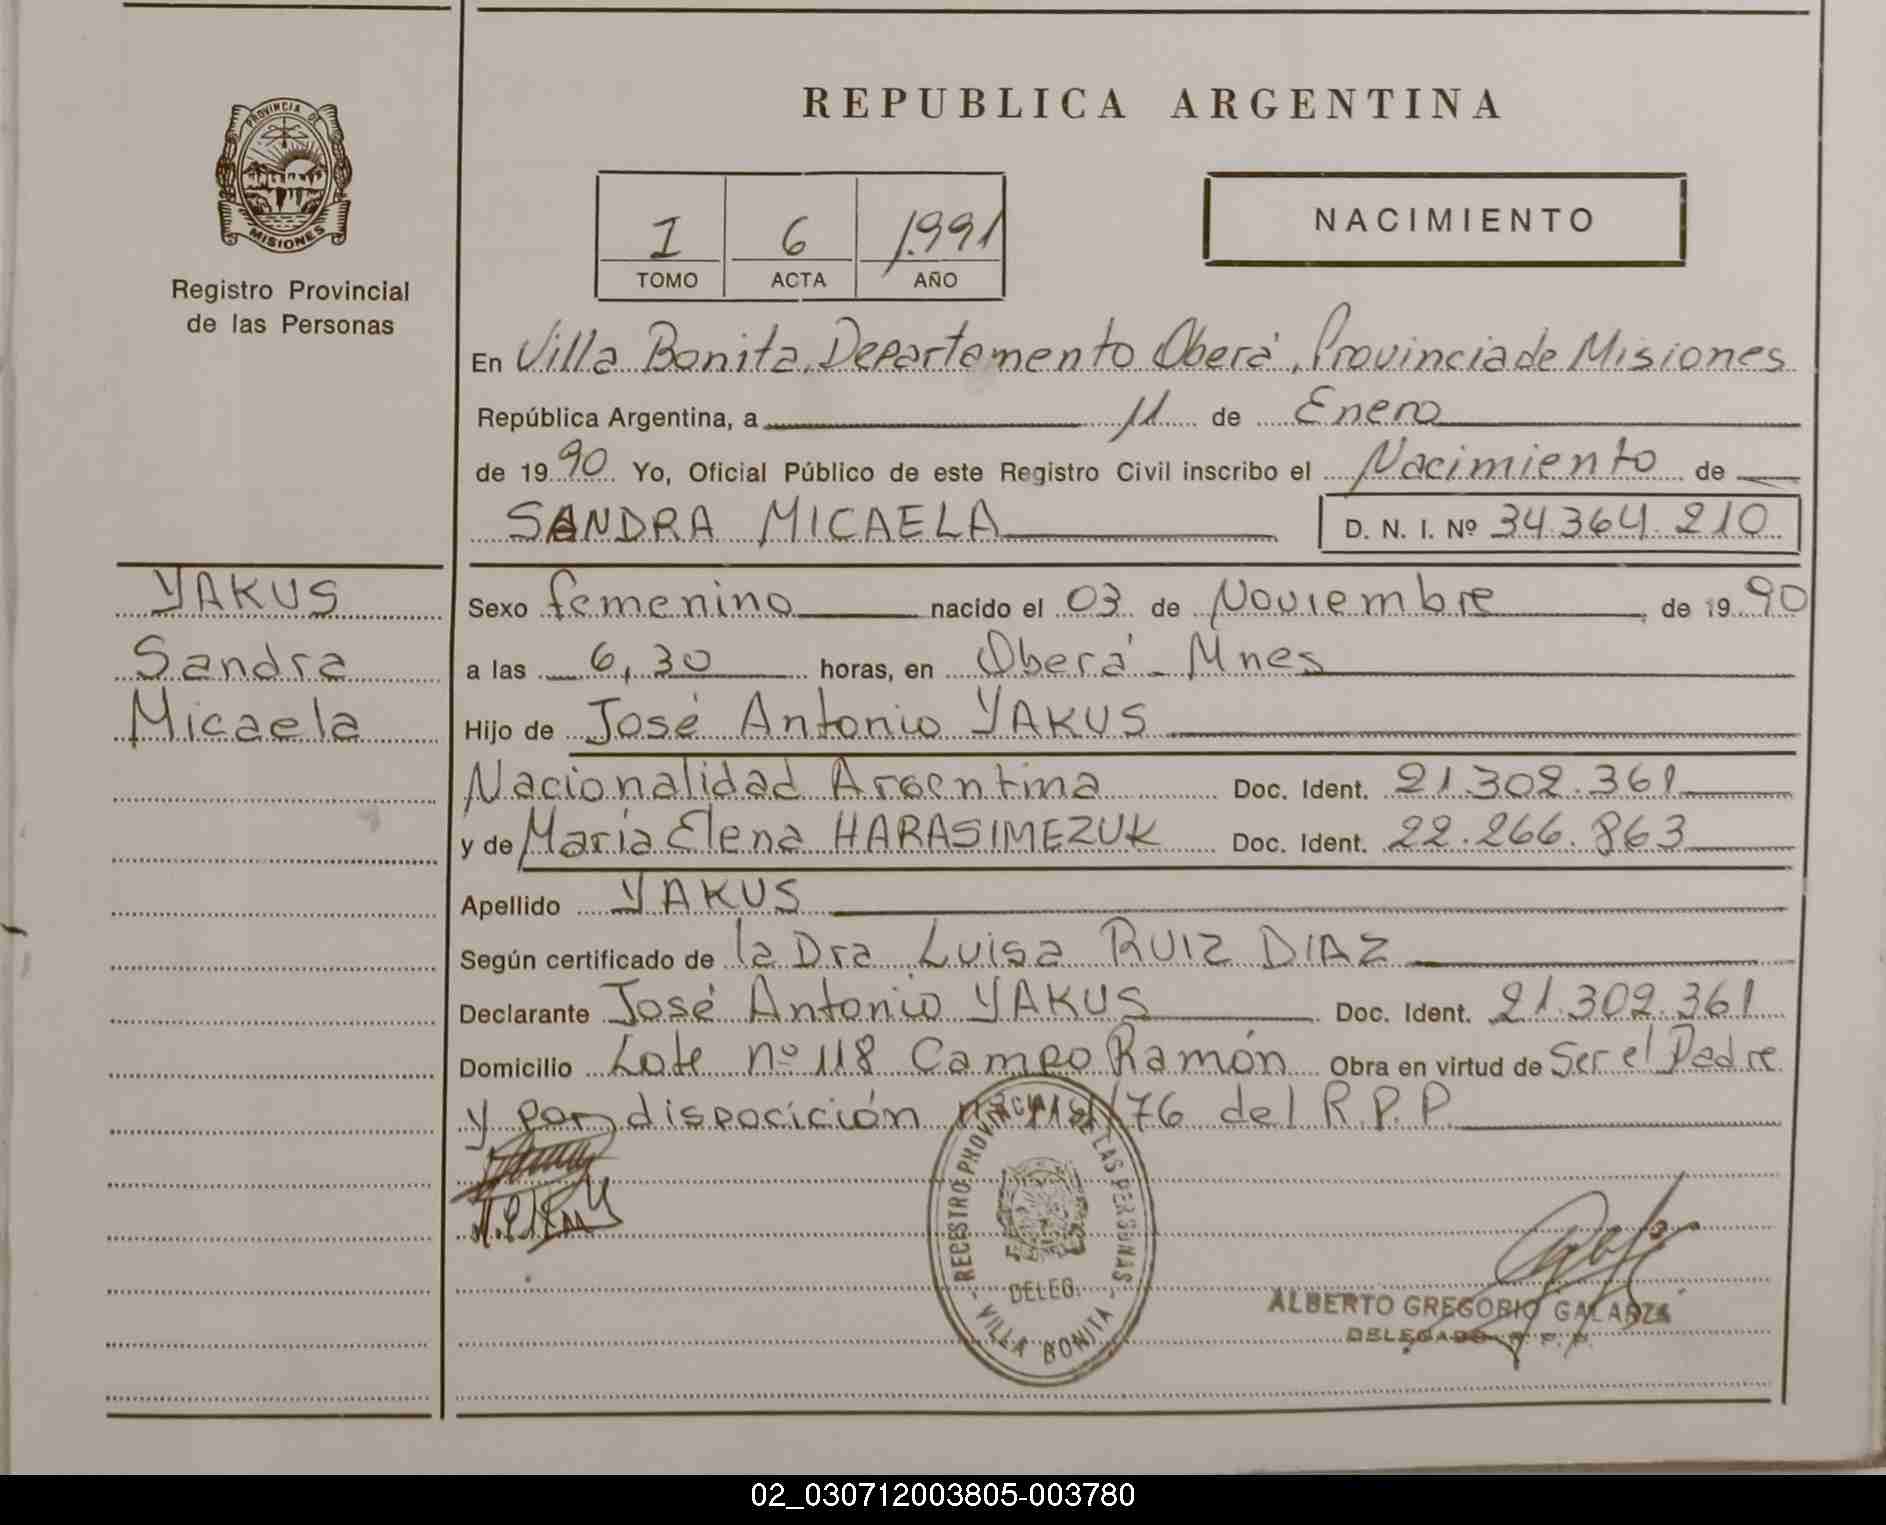 REPUBLICA ARGENTINA
PROVINCIA DE
MISIONES
Registro Provincial
de las Personas
1 6 1.991
TOMO ACTA AÑO
NACIMIENTO
En Villa Bonita, Departamento Oberá, Provincia de Misiones
República Argentina, a 11 de Enero
de 1990 Yo, Oficial Público de este Registro Civil inscribo el Nacimiento de
SANDRA MICAELA D. N. I. Nº 34.364.210
YAKUS
Sandra
Micaela
Sexo femenino nacido el 03 de Noviembre de 1990
a las 6,30 horas, en Oberá - Mnes
Hijo de José Antonio YAKUS
Nacionalidad Argentina Doc. Ident. 21.302.361
y de María Elena HARASIMEZUK Doc. Ident. 22.266.863
Apellido YAKUS
Según certificado de la Dra Luisa RUIZ DIAZ
Declarante José Antonio YAKUS Doc. Ident. 21.302.361
Domicilio Lote nº 118 Campo Ramón Obra en virtud de Ser el Padre
y por disposición /76 del R.P.P.
REGISTRO PROVINCIAL DE LAS PERSONAS
DELEG.
- VILLA BONITA -
ALBERTO GREGORIO GALARZA
DELEGADO R. P. P.
02_030712003805-003780